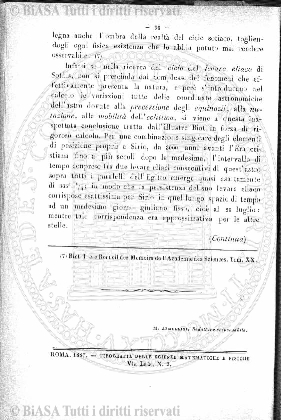 — 94 —
legna anche l'ombra della realtà del ciclo sotiaco, toglien-
dogli ogni fisica esistenza che lo abbia potuto mai rendere
osservabile. (7)
Infatti se nella ricerca del ciclo del levare eliaco di
Sothis, non si prescinda dal complesso dei fenomeni che ef-
fettivamente presenta la natura, e però s'introducano nel
calcolo le variazioni tutte delle coordinate astronomiche
dell'astro dovute alla precessione degli equinozi, alla nu-
tazione, alla mobilità dell'eclittica, si viene a questa ina-
spettata conclusione tratta dall'illustre Biot in forza di ri-
goroso calcolo. Per una combinazione singolare degli elementi
di posizione propri a Sirio, da 2000 anni avanti l'êra cri-
stiana fino a più secoli dopo la medesima, l'intervallo di
tempo compreso tra due levare eliaci consecutivi di quest'astro
sopra tutti i paralleli dell'Egitto emerge quasi esattamente
di in modo che la persistenza del suo levare eliaco
corrispose esattissima per Sirio in quel lungo spazio di tempo
ad un medesimo giorno giuliano fisso, cioè al 20 luglio:
mentre tale corrispondenza era approssimativa per le altre
stelle.
(Continua)
(7) Biot. Recueil des Memoires de l'Académie des Sciences. Tom. XX.
ROMA, 1887. — TIPOGRAFIA DELLE SCIENZE MATEMATICHE E FISICHE
Via Lata, N. 3.
© BIASA Tutti i diritti riservati